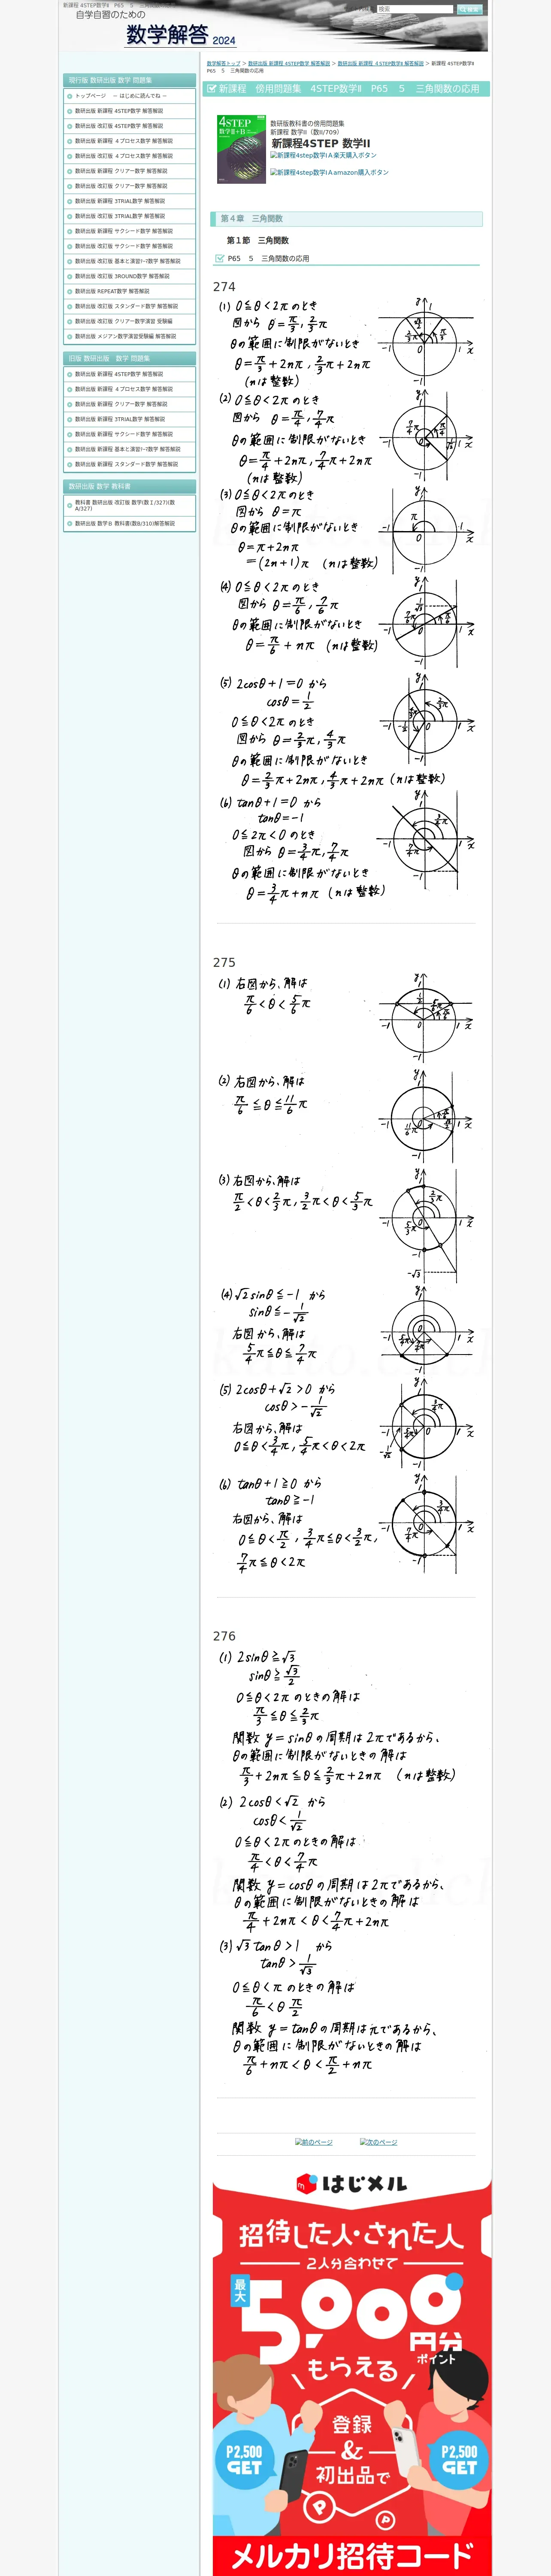 新課程 4STEP数学Ⅱ P65 5 三
自学自習のための
数学解答 2024
検索
検索
数学解答トップ > 数研出版 新課程 4STEP数学 解答解説 > 数研出版 新課程 4STEP数学Ⅱ 解答解説 > 新課程 4STEP数学Ⅱ
P65 5 三角関数の応用
現行版 数研出版 数学 問題集
トップページ － はじめに読んでね －
数研出版 新課程 4STEP数学 解答解説
数研出版 改訂版 4STEP数学 解答解説
数研出版 新課程 4プロセス数学 解答解説
数研出版 改訂版 4プロセス数学 解答解説
数研出版 新課程 クリアー数学 解答解説
数研出版 改訂版 クリアー数学 解答解説
数研出版 新課程 3TRIAL数学 解答解説
数研出版 改訂版 3TRIAL数学 解答解説
数研出版 新課程 サクシード数学 解答解説
数研出版 改訂版 サクシード数学 解答解説
数研出版 改訂版 基本と演習ﾃｰﾏ数学 解答解説
数研出版 改訂版 3ROUND数学 解答解説
数研出版 REPEAT数学 解答解説
数研出版 改訂版 スタンダード数学 解答解説
数研出版 改訂版 クリアー数学演習 受験編
数研出版 メジアン数学演習受験編 解答解説
旧版 数研出版 数学 問題集
数研出版 新課程 4STEP数学 解答解説
数研出版 新課程 4プロセス数学 解答解説
数研出版 新課程 クリアー数学 解答解説
数研出版 新課程 3TRIAL数学 解答解説
数研出版 新課程 サクシード数学 解答解説
数研出版 新課程 基本と演習ﾃｰﾏ数学 解答解説
数研出版 新課程 スタンダード数学 解答解説
数研出版 数学 教科書
教科書 数研出版 改訂版 数学(数Ⅰ/327)(数
A/327)
数研出版 数学Ｂ 教科書(数B/310)解答解説
新課程 傍用問題集 4STEP数学Ⅱ P65 5 三角関数の応用
4STEP
数学Ⅱ+B
数研版教科書の傍用問題集
新課程 数学II（数II/709）
新課程4STEP 数学II
新課程4step数学ⅠA楽天購入ボタン
新課程4step数学ⅠAamazon購入ボタン
第４章 三角関数
第１節 三角関数
P65 5 三角関数の応用
274
(1) 0≦θ<2πのとき
図から θ=π/3, 2/3π
θの範囲に制限がないとき
θ=π/3+2nπ, 2/3π+2nπ
(nは整数)
(2) 0≦θ<2πのとき
図から θ=π/4, 7/4π
θの範囲に制限がないとき
θ=π/4+2nπ, 7/4π+2nπ
(nは整数)
(3) 0≦θ<2πのとき
図から θ=π
θの範囲に制限がないとき
θ=π+2nπ
=(2n+1)π (nは整数)
(4) 0≦θ<2πのとき
図から θ=π/6, 7/6π
θの範囲に制限がないとき
θ=π/6+nπ (nは整数)
(5) 2cosθ+1=0 から
cosθ=1/2
0≦θ<2πのとき
図から θ=2/3π, 4/3π
θの範囲に制限がないとき
θ=2/3π+2nπ, 4/3π+2nπ (nは整数)
(6) tanθ+1=0 から
tanθ=-1
0≦2π<0のとき
図から θ=3/4π, 7/4π
θの範囲に制限がないとき
θ=3/4π+nπ (nは整数)
275
(1) 右図から、解は
π/6<θ<5/6π
(2) 右図から、解は
π/6≦θ≦11/6π
(3) 右図から、解は
π/2<θ<2/3π, 3/2π<θ<5/3π
(4) √2sinθ≦-1 から
sinθ≦-1/√2
右図から、解は
5/4π≦θ≦7/4π
(5) 2cosθ+√2>0 から
cosθ>-1/√2
右図から、解は
0≦θ<3/4π, 5/4π<θ<2π
(6) tanθ+1≧0 から
tanθ≧-1
右図から、解は
0≦θ<π/2, 3/4π≦θ<3/2π,
7/4π≦θ<2π
276
(1) 2sinθ≧√3
sinθ≧√3/2
0≦θ<2πのときの解は
π/3≦θ≦2/3π
関数 y=sinθの周期は2πであるから、
θの範囲に制限がないときの解は
π/3+2nπ≦θ≦2/3π+2nπ (nは整数)
(2) 2cosθ<√2 から
cosθ<1/√2
0≦θ<2πのときの解は
π/4<θ<7/4π
関数 y=cosθの周期は2πであるから、
θの範囲に制限がないときの解は
π/4+2nπ<θ<7/4π+2nπ
(3) √3tanθ>1 から
tanθ>1/√3
0≦θ<πのときの解は
π/6<θ π/2
関数 y=tanθの周期はπであるから、
θの範囲に制限がないときの解は
π/6+nπ<θ<π/2+nπ
前のページ 次のページ
はじメル
招待した人・された人
2人分合わせて
最大
5,000円分
ポイント
もらえる
登録
&
初出品で
P2,500
GET
P2,500
GET
メルカリ招待コード